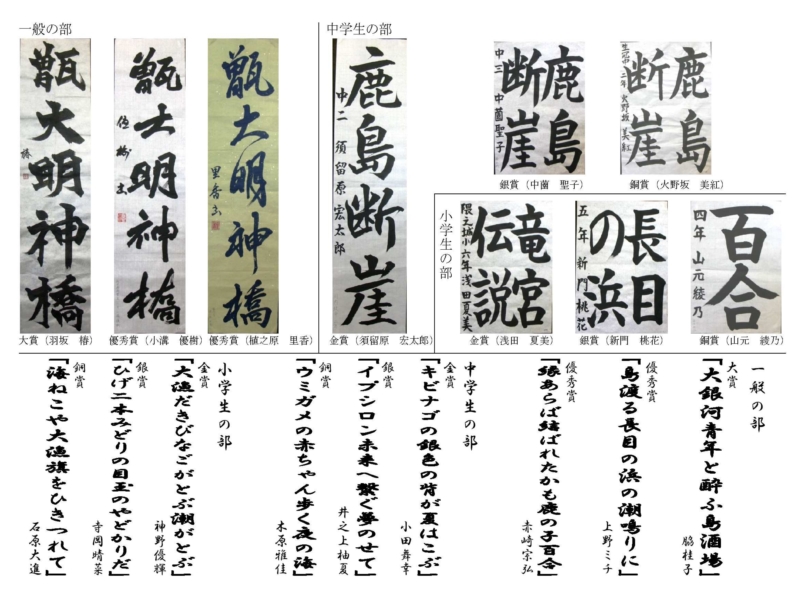 一般の部
甑大明神橋
椿
大賞（羽坂　椿）
甑大明神橋
優樹書
優秀賞（小溝　優樹）
甑大明神橋
里香書
優秀賞（植之原　里香）
中学生の部
鹿島断崖
中二　須留原宏太郎
金賞（須留原　宏太郎）
鹿島
断崖
中三　中薗聖子
銀賞（中薗　聖子）
鹿島
断崖
二年　火野坂美紅
銅賞（火野坂　美紅）
小学生の部
竜宮
伝説
隈之城小六年浅田夏美
金賞（浅田　夏美）
長目
の浜
五年　新門桃花
銀賞（新門　桃花）
百合
四年　山元綾乃
銅賞（山元　綾乃）
一般の部
大賞
「大銀河青年と酔ふ島酒場」
脇桂子
優秀賞
「鳥渡る長目の浜の潮鳴りに」
上野ミチ
優秀賞
「縁あらば結ばれたかも鹿の子百合」
赤崎宗弘
中学生の部
金賞
「キビナゴの銀色の背が夏はこぶ」
小田舞幸
銀賞
「イプシロン未来へ繋ぐ夢のせて」
井之上柚夏
銅賞
「ウミガメの赤ちゃん歩く夜の海」
木原雅佳
小学生の部
金賞
「大漁だきびなごがとぶ潮がとぶ」
神野優輝
銀賞
「ひげ二本みどりの目玉のやどかりだ」
寺岡晴菜
銅賞
「海ねこや大漁旗をひきつれて」
石原大進